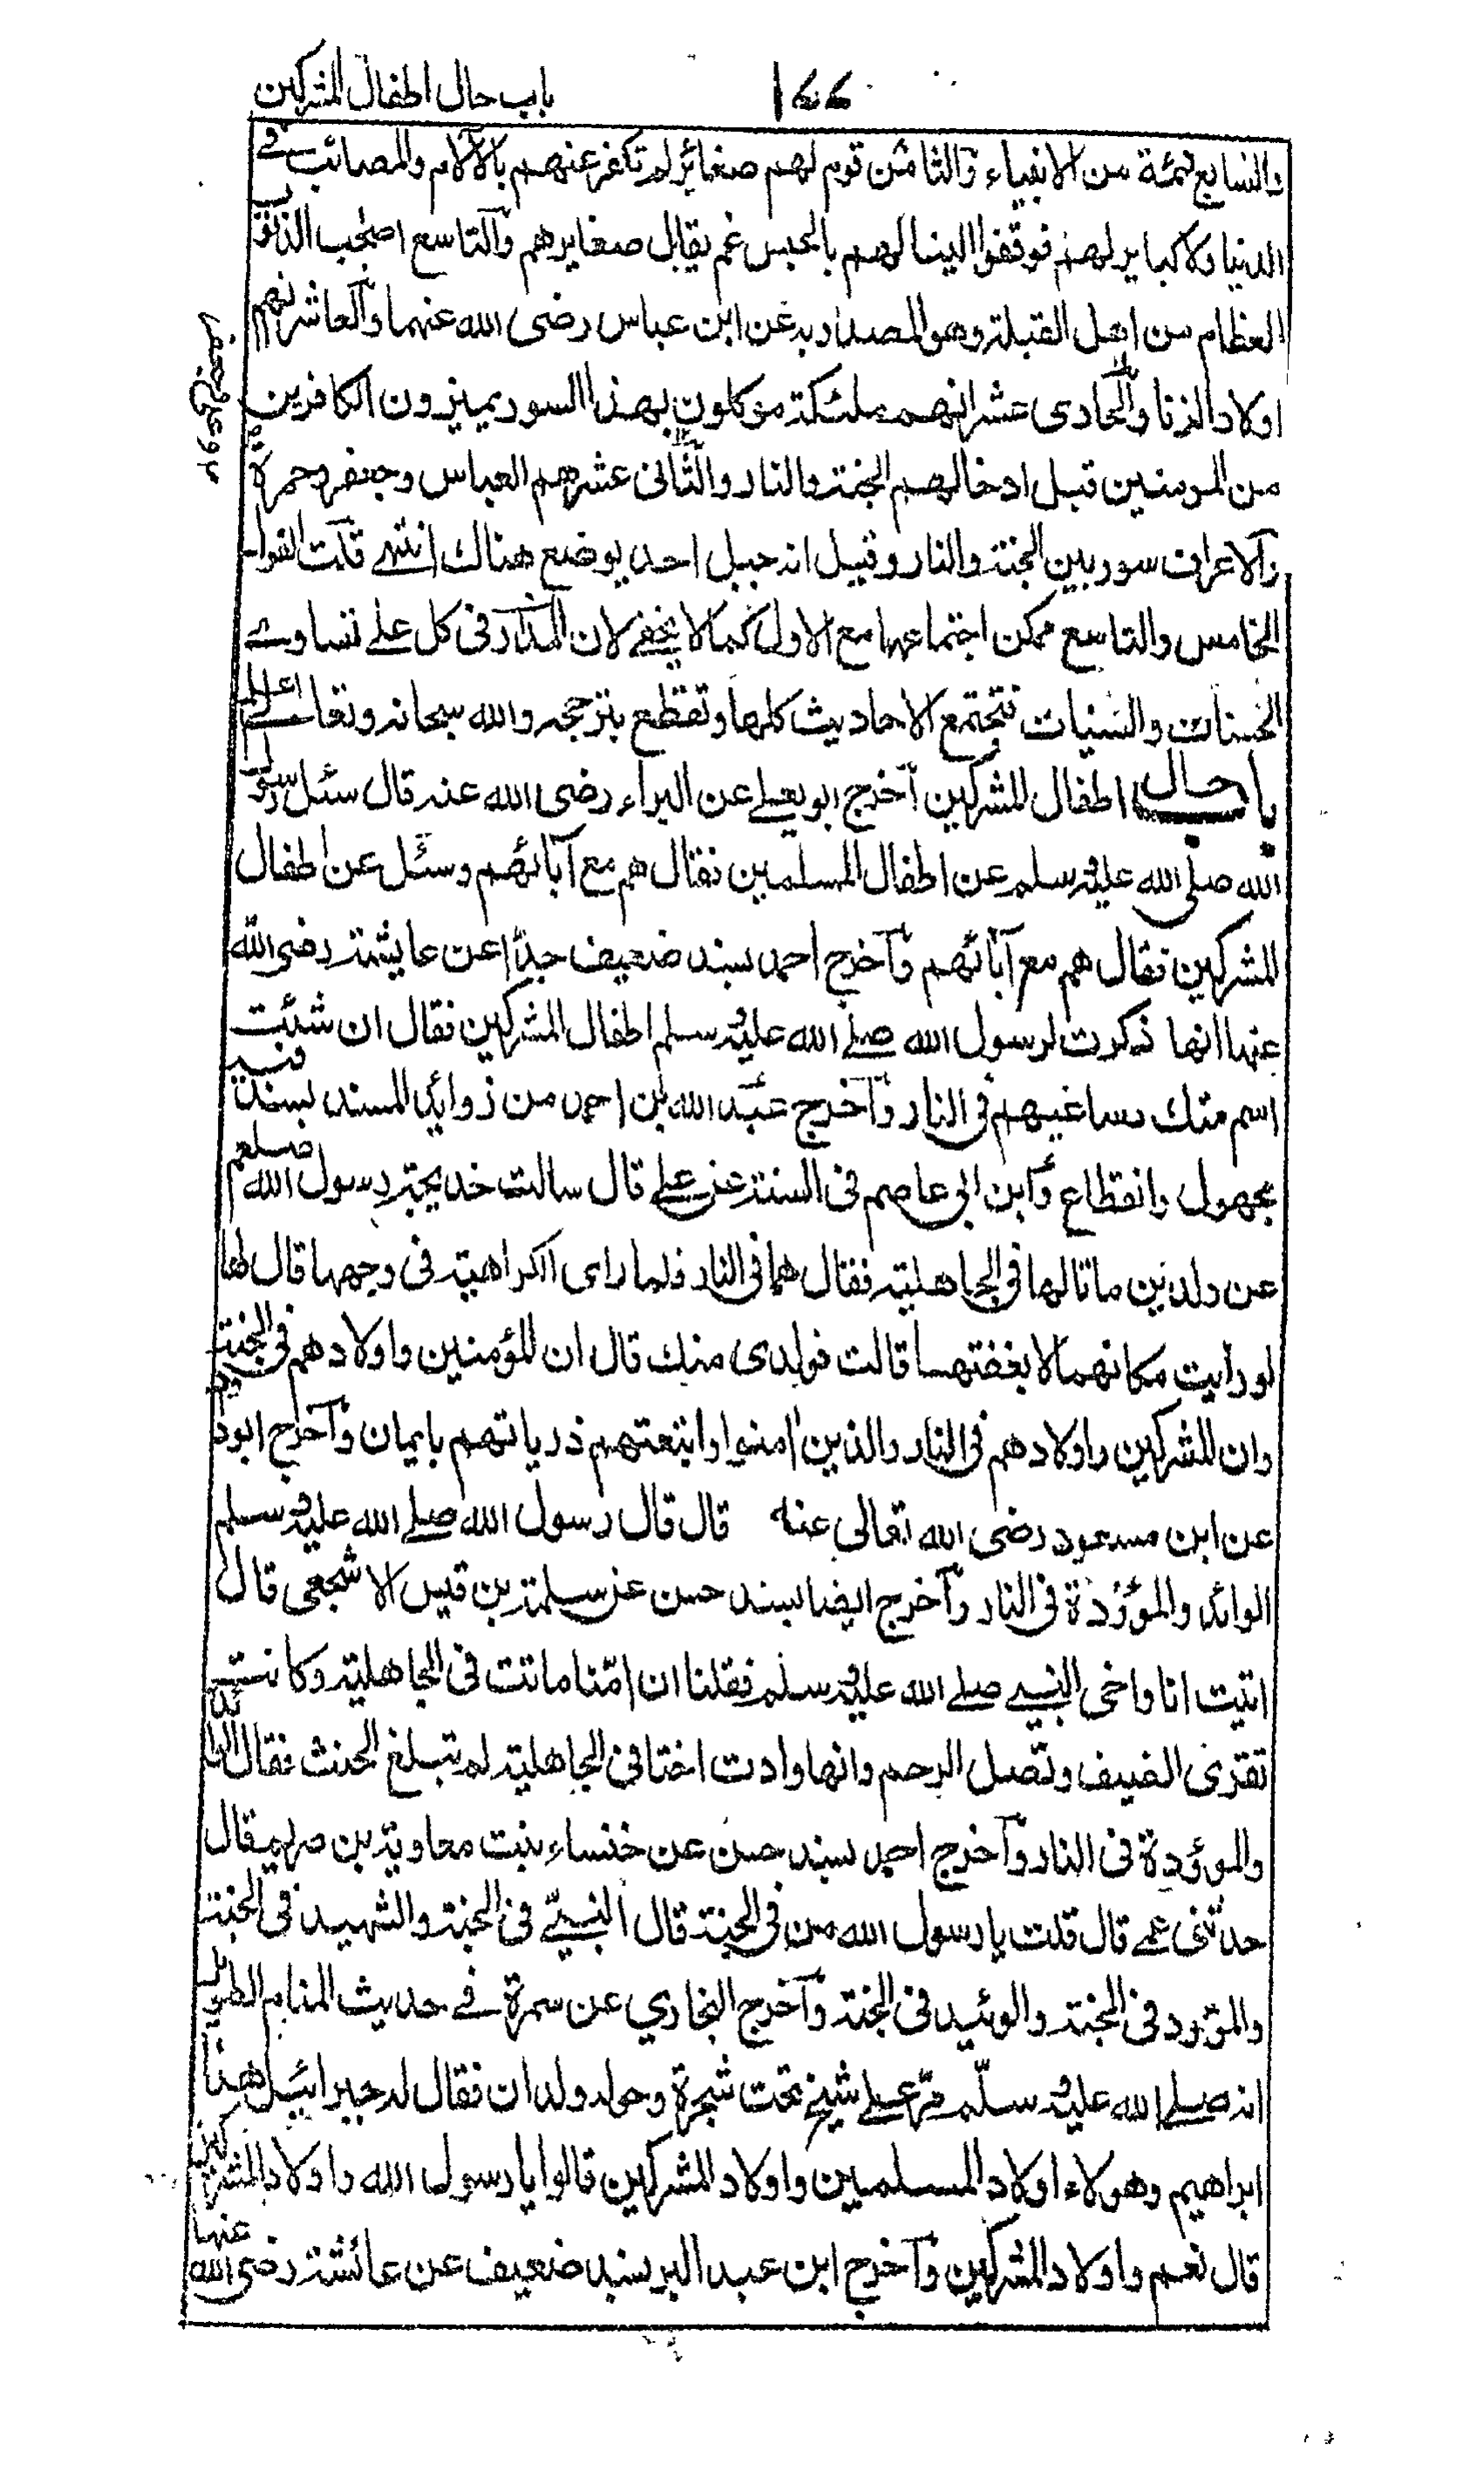 باب حال اطفال المشركين ١٧٧
والسابع ئمئة من الانبياء والثامن قوم لهم صغائر لم تكفر عنهم بالآلام والمصائب في
الدنيا ولا كباير لهم فوقفوا لينالهم بالحبس غم يقابل صغايرهم والتاسع اصحب الذنوب
العظام من اهل القبلة وهو المصدر به عن ابن عباس رضى الله عنهما والعاشر انهم
اولاد الزنا والحادى عشر انهم ملئكة موكلون بهذا السور يميزون الكافرين
من المومنين قبل ادخالهم الجنة والنار والثانى عشر هم العباس وجعفر وحمزة
والاعراف سور بين الجنة والنار وقيل انه جبل احد يوضع هناك انتهى قلت القول
الخامس والتاسع ممكن اجتماعها مع الاول كما لا يخفى لان المدار فى كل على تساوى
الحسنات والسيات فتجتمع الاحاديث كلها وتقطع بترجيحه والله سبحانه وتعالى اعلم
باب حال اطفال المشركين آخرج ابو يعلى عن البراء رضى الله عنه قال سئل رسول
الله صلى الله عليه وسلم عن اطفال المسلمين فقال هم مع آبائهم وسئل عن اطفال
المشركين فقال هم مع آبائهم وآخرج احمد بسند ضعيف جدًا عن عايشة رضى الله
عنها انها ذكرت لرسول الله صلى الله عليه وسلم اطفال المشركين فقال ان شئت
اسمعتك تضاغيهم فى النار وآخرج عبد الله بن احمد من زوايد المسند بسند فيه
مجهول وانقطاع وآبن ابى عاصم فى السنة عن على قال سالت خديجة رسول الله صلعم
عن ولدين ماتا لها فى الجاهلية فقال هما فى النار فلما راى الكراهية فى وجهها قال لها
لو رأيت مكانهما لابغضتهما قالت فولدى منك قال ان المؤمنين واولادهم فى الجنة
وان المشركين واولادهم فى النار والذين امنوا واتبعتهم ذرياتهم بايمان وآخرج ابو داود
عن ابن مسعود رضى الله تعالى عنه قال قال رسول الله صلى الله عليه وسلم
الوائد والموؤدة فى النار وآخرج ايضا بسند حسن عن سلمة بن قيس الاشجعى قال
اتيت انا واخى النبى صلى الله عليه وسلم فقلنا ان امّنا ماتت فى الجاهلية وكانت
تقرى الضيف وتصل الرحم وانها وادت اختا فى الجاهلية لم تبلغ الحنث فقال الوائدة
والموؤدة فى النار وآخرج احمد بسند حسن عن خنساء بنت معاوية بن صريم قال
حدثنى عمى قال قلت يا رسول الله من فى الجنة قال النبىّ فى الجنة والشهيد فى الجنة
والمولود فى الجنة والوئيد فى الجنة وآخرج البخاري عن سمرة فى حديث المنام الطويل
انه صلى الله عليه وسلّم مرّ على شيخ تحت شجرة وحوله ولدان فقال له جبرائيل هذا
ابراهيم وهولاء اولاد المسلمين واولاد المشركين قالوا يا رسول الله واولاد المشركين
قال نعم واولاد المشركين وآخرج ابن عبد البر بسند ضعيف عن عائشة رضى الله عنها